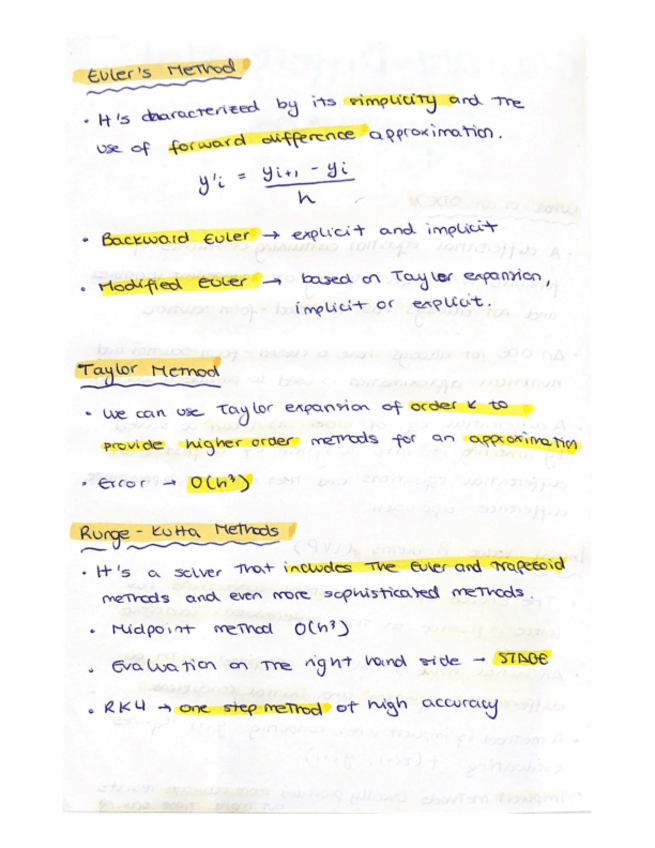 Euler's Method
• It's characterized by its simplicity and the
use of forward difference approximation.
y'i = yi+1 - yi / h
• Backward Euler → explicit and implicit
• Modified Euler → based on Taylor expansion,
implicit or explicit.
Taylor Method
• We can use Taylor expansion of order k to
provide higher order methods for an approximation
• Error → O(h³)
Runge-Kutta Methods
• It's a solver that includes the Euler and Trapezoid
methods and even more sophisticated methods.
• Midpoint method O(h³)
• Evaluation on the right hand side → STAGE
• RK4 → one step method of high accuracy